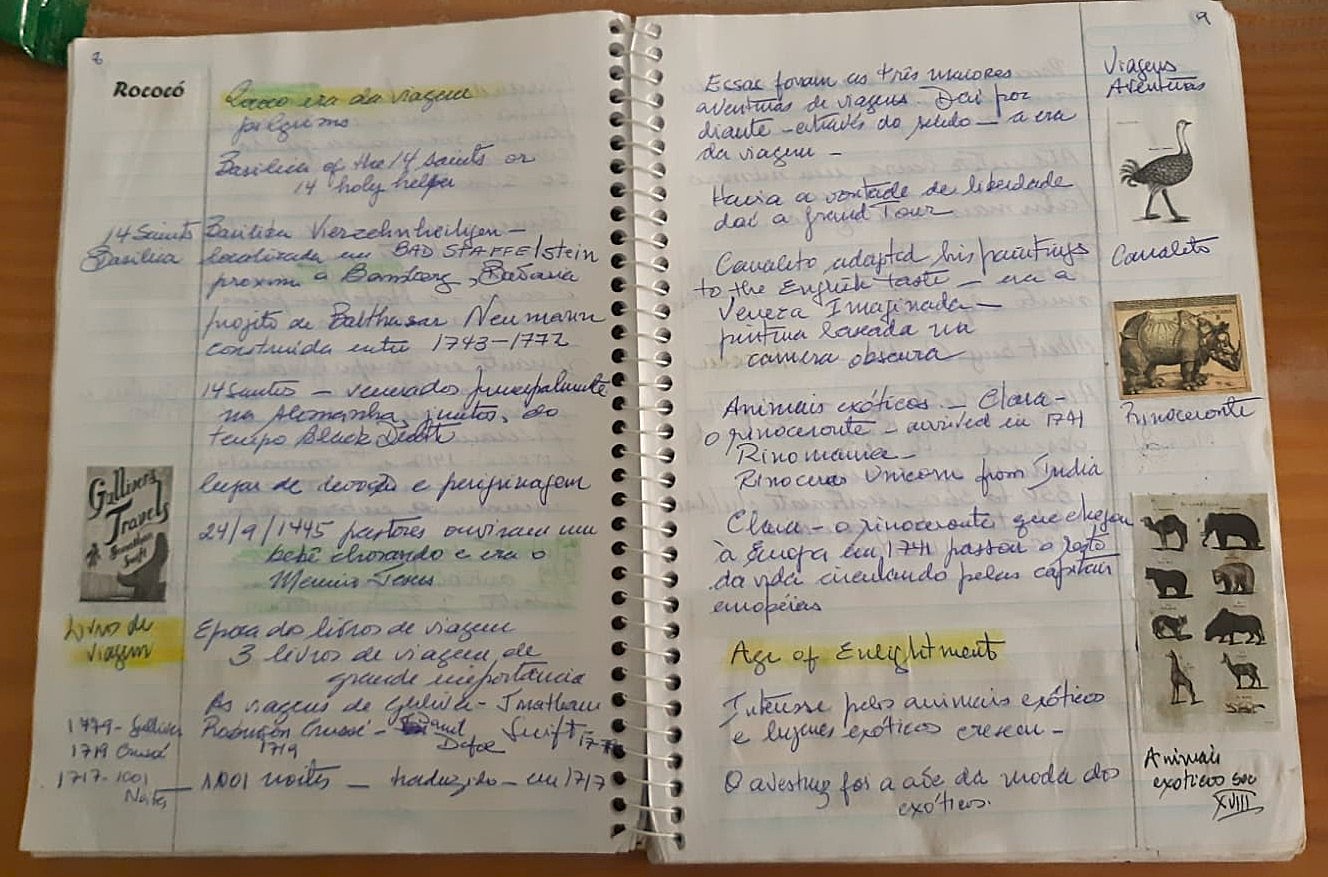 8
Rococó
Rococo era da viagem
pilgrims
Basilica of the 14 saints or
14 holy helper
14 Saints
Basilica
Basilica Vierzehnheiligen –
localizada em BAD STAFFElstein
proximo a Bamberg, Bavaria
projeto de Balthasar Neumann
construida entre 1743-1772
14 Santos – venerados principalmente
na Alemanha, juntos, do
tempo Black Death
lugar de devoção e peregrinagem
24/9/1445 pastores ouviram um
bebê chorando e era o
Menino Jesus
Gulliver's
Travels
Jonathan
Swift
Livros de
viagem
Epoca dos livros de viagem
3 livros de viagem de
grande importância
As viagens de Gulliver - Jonathan
Swift -
Robinson Crusoé - Daniel
1719 Defoe
1001 noites – traduzido – em 1717
1779 - Gulliver
1719 Crusoé
1717 - 1001
Noites
9
Essas foram as três maiores
aventuras de viagens. Daí por
diante – através do século – a era
da viagem –
Havia a vontade de liberdade
daí a grand Tour
Canaleto adapted his paintings
to the English taste – era a
Veneza Imaginada –
pintura baseada na
camera obscura
Animais exóticos – Clara –
o rinoceronte – arrived in 1741
Rinomania –
Rinoceros Unicorn from India
Clara – o rinoceronte que chegou
à Europa em 1741 passou o resto
da vida circulando pelas capitais
européias
Age of Enlightment
Interesse pelos animais exóticos
e lugares exóticos cresceu –
O avestruz foi a ave da moda dos
exóticos.
Viagens
Aventuras
Canaleto
Rinoceronte
Animais
exoticos sec
XVIII